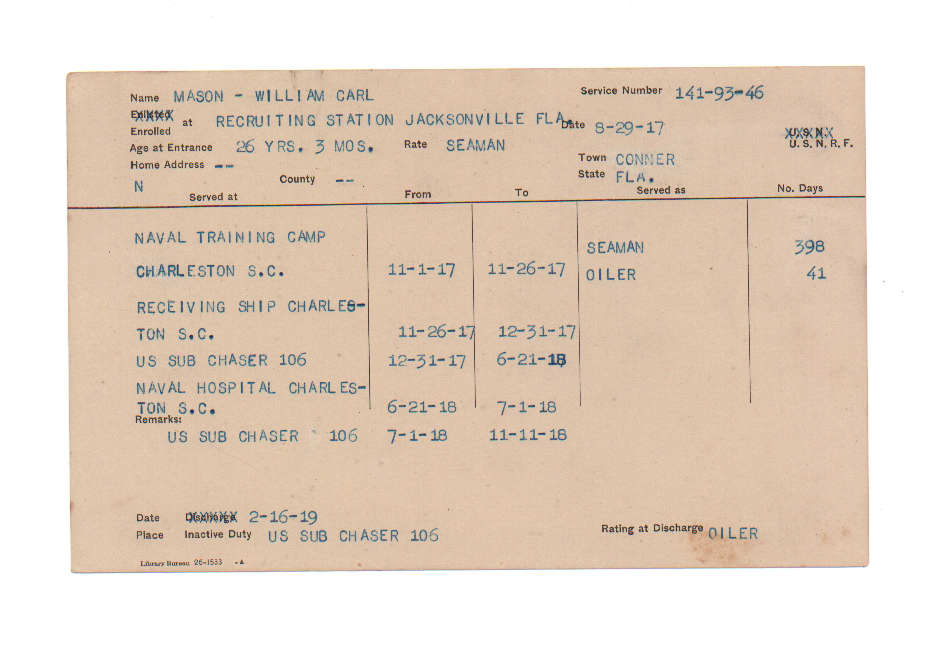 Name MASON - WILLIAM CARL Service Number 141-93-46
Enlisted
Enrolled at RECRUITING STATION JACKSONVILLE FLA. Date 8-29-17 U.S.N.
U. S. N. R. F.
Age at Entrance 26 YRS. 3 MOS. Rate SEAMAN
Home Address -- Town CONNER
N County -- State FLA.
Served at From To Served as No. Days
NAVAL TRAINING CAMP SEAMAN 398
CHARLESTON S.C. 11-1-17 11-26-17 OILER 41
RECEIVING SHIP CHARLES-
TON S.C. 11-26-17 12-31-17
US SUB CHASER 106 12-31-17 6-21-18
NAVAL HOSPITAL CHARLES-
TON S.C. 6-21-18 7-1-18
Remarks:
US SUB CHASER 106 7-1-18 11-11-18
Date Discharge 2-16-19
Place Inactive Duty US SUB CHASER 106 Rating at Discharge OILER
Library Bureau 26-1553 -A